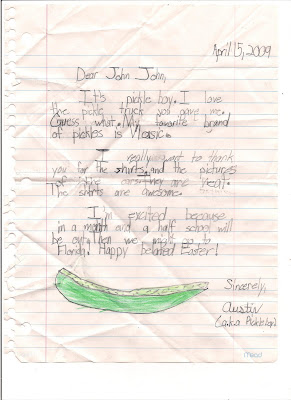 April 15, 2009
Dear John John,
It's pickle boy. I love
the pickle truck you gave me.
Guess what. My favorite brand
of pickles is Vlasic.
I really want to thank
you for the shirts and the pictures
of the cars. They are neat.
The shirts are awesome.
I'm excited because
in a month and a half school will
be out. Then we might go to
Florida. Happy belated Easter!
Sincerely,
Austin
(a.k.a.
Mead